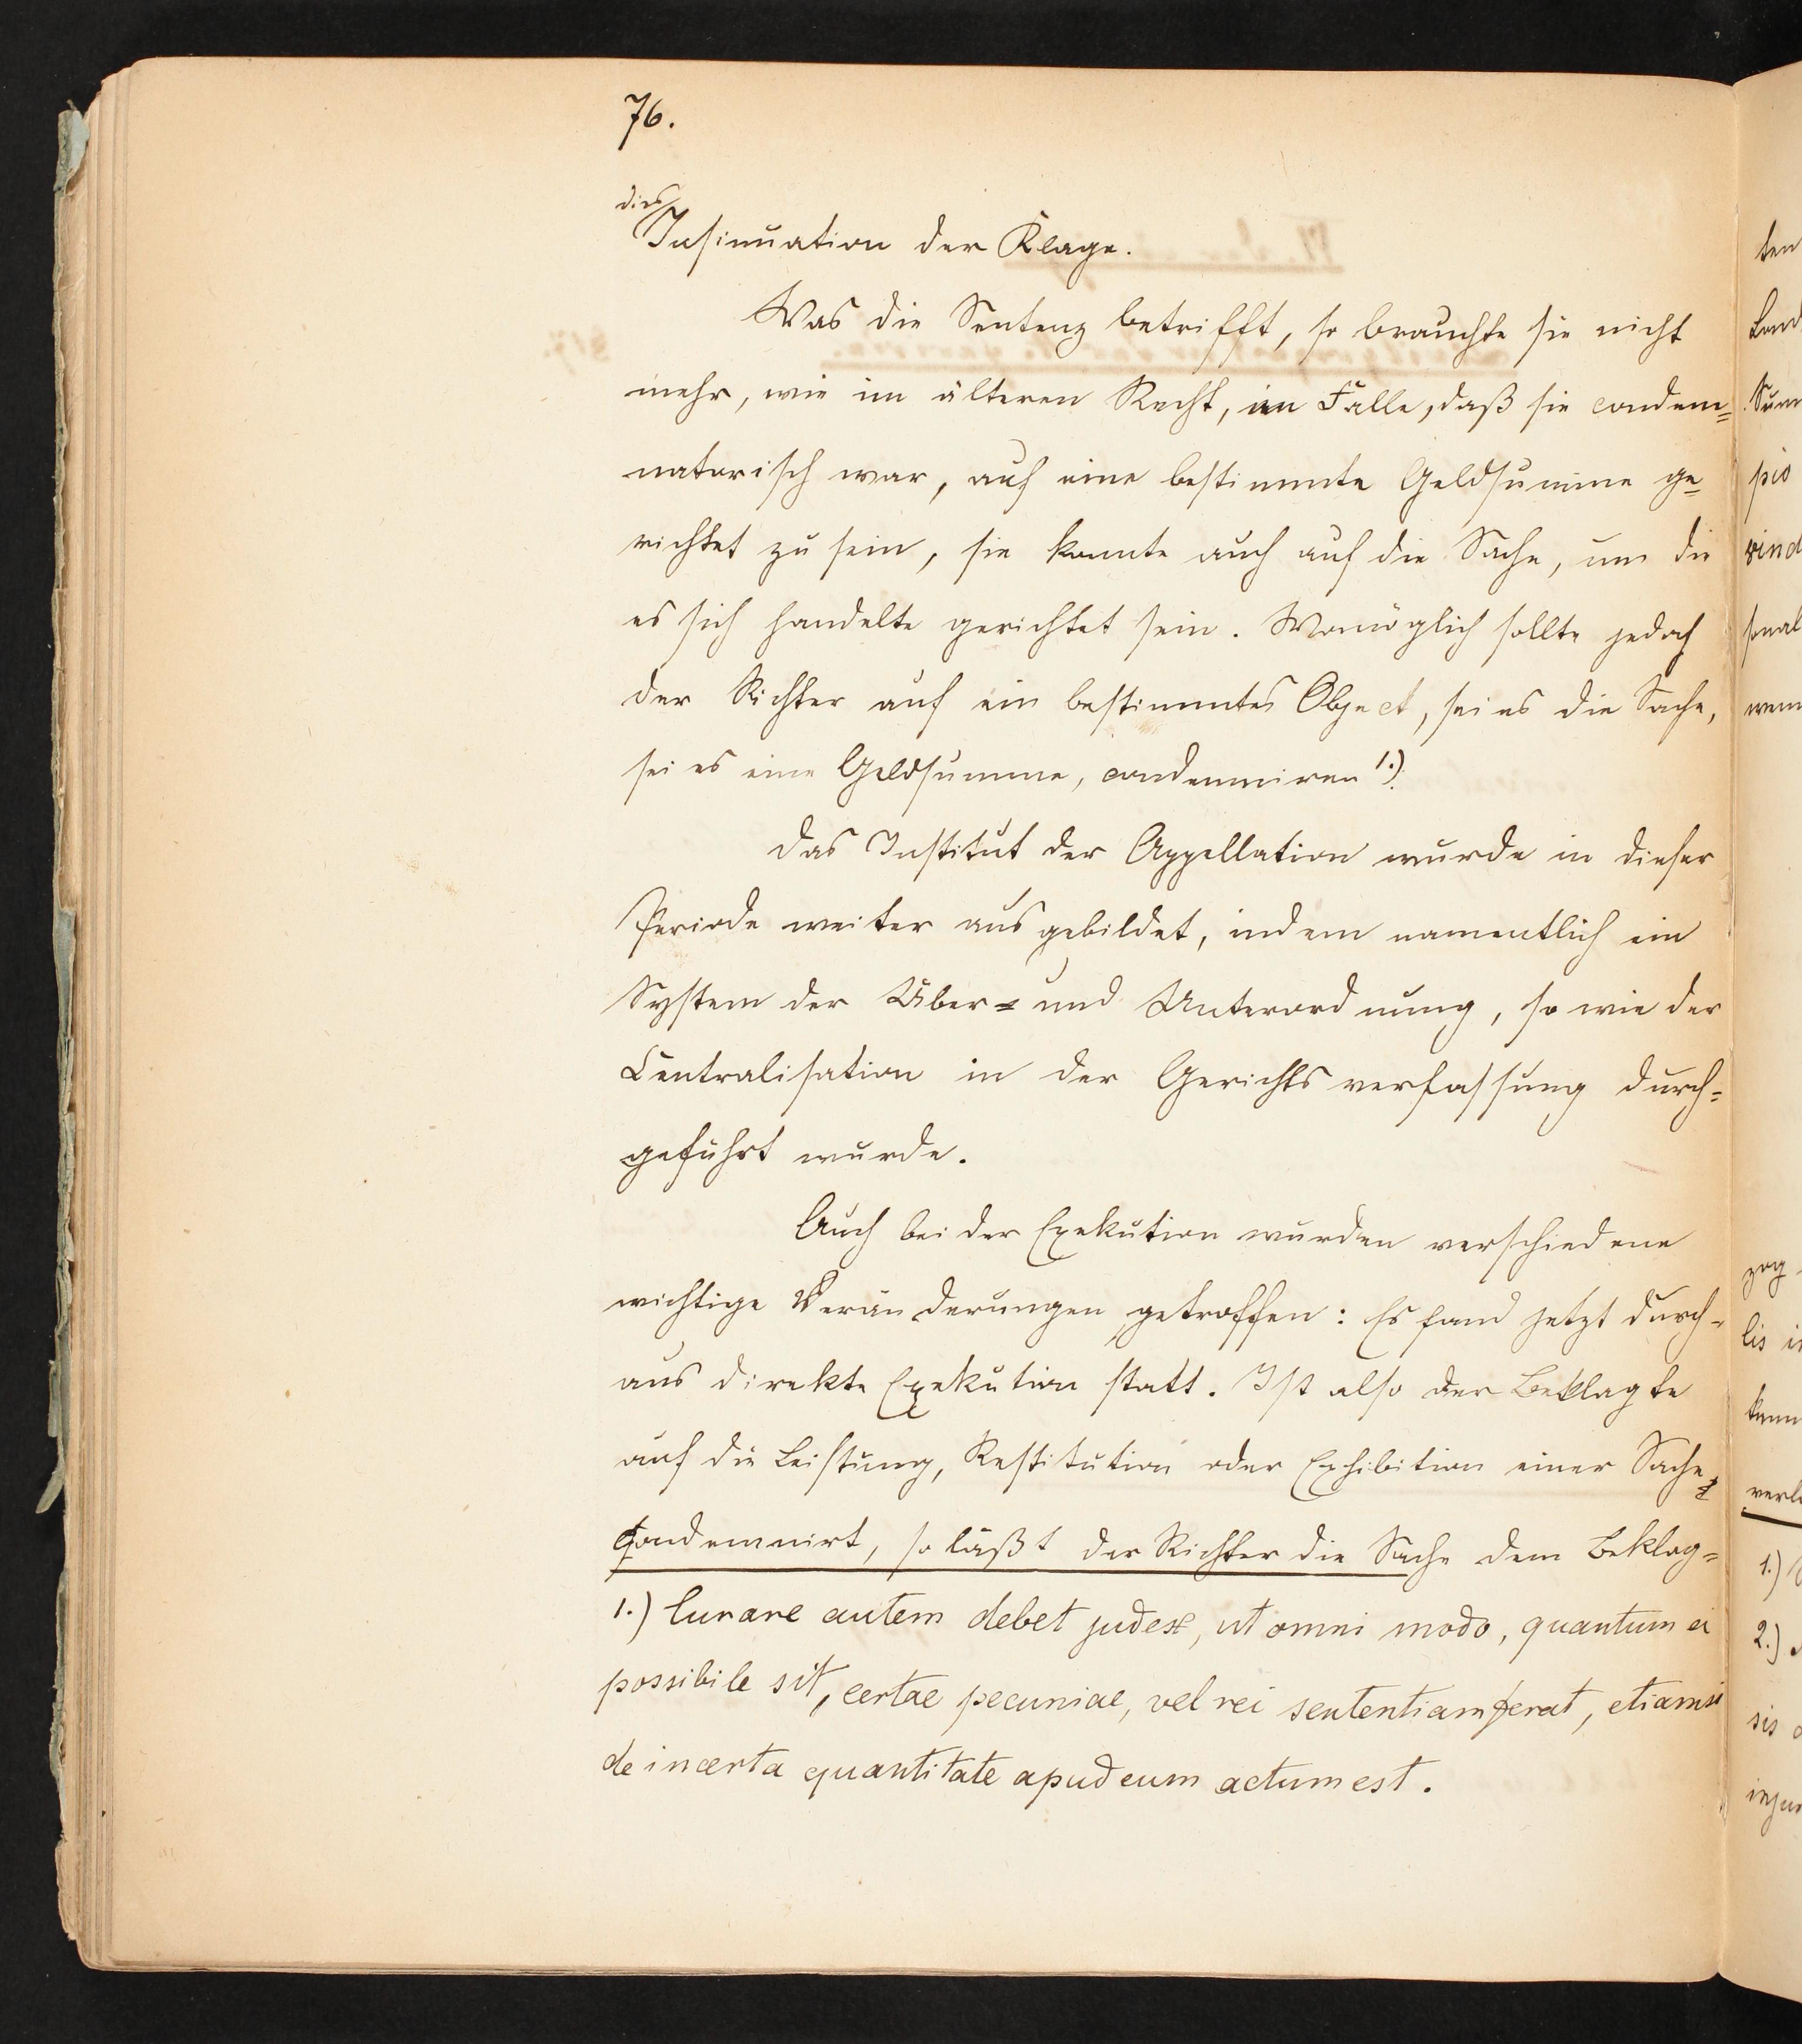 76.
dies
Insinuation der Klage.
Was die Sentenz betrifft, so brauchte sie nicht
mehr, wie im älteren Recht, im Falle, daß sie condem=
natorisch war, auf eine bestimmte Geldsumme ge=
richtet zu sein, sie konnte auch auf die Sache, um die
es sich handelte gerichtet sein. Womöglich sollte jedoch
der Richter auf ein bestimmtes Object, sei es die Sache,
sei es eine Geldsumme, condemniren 1.).
Das Institut der Appellation wurde in dieser
Periode weiter ausgebildet, indem namentlich ein
System der Über= und Unterordnung, so wie der
Centralisation in der Gerichtsverfassung durch=
geführt wurde.
Auch bei der Exekution wurden verschiedene
wichtige Veränderungen getroffen: Es fand jetzt durch=
aus direkte Exekution statt. Ist also der Beklagte
auf die Leistung, Restitution oder Exhibition einer Sache
condemnirt, so läßt der Richter die Sache dem Beklag=
1.) Curare autem debet judex, ut omni modo, quantum ei
possibile sit, certae pecuniae, vel rei sententiam ferat, etiamsi
de incerta quantitate apud eum actum est.
ten
Sum
pio
vind
sonal
wenn
zog
lis i
kann
verl
1.)
2.)
sis
injur